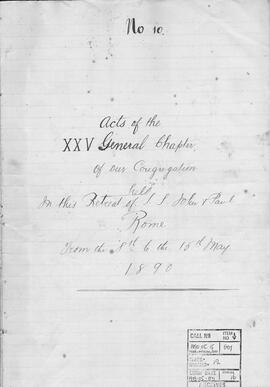 No 10.
Acts of the
XXV General Chapter,
of our Congregation
held
In this Retreat of S.S. John & Paul
Rome
From the 8th to the 15th May
1890
CALL NO
ITEM NO